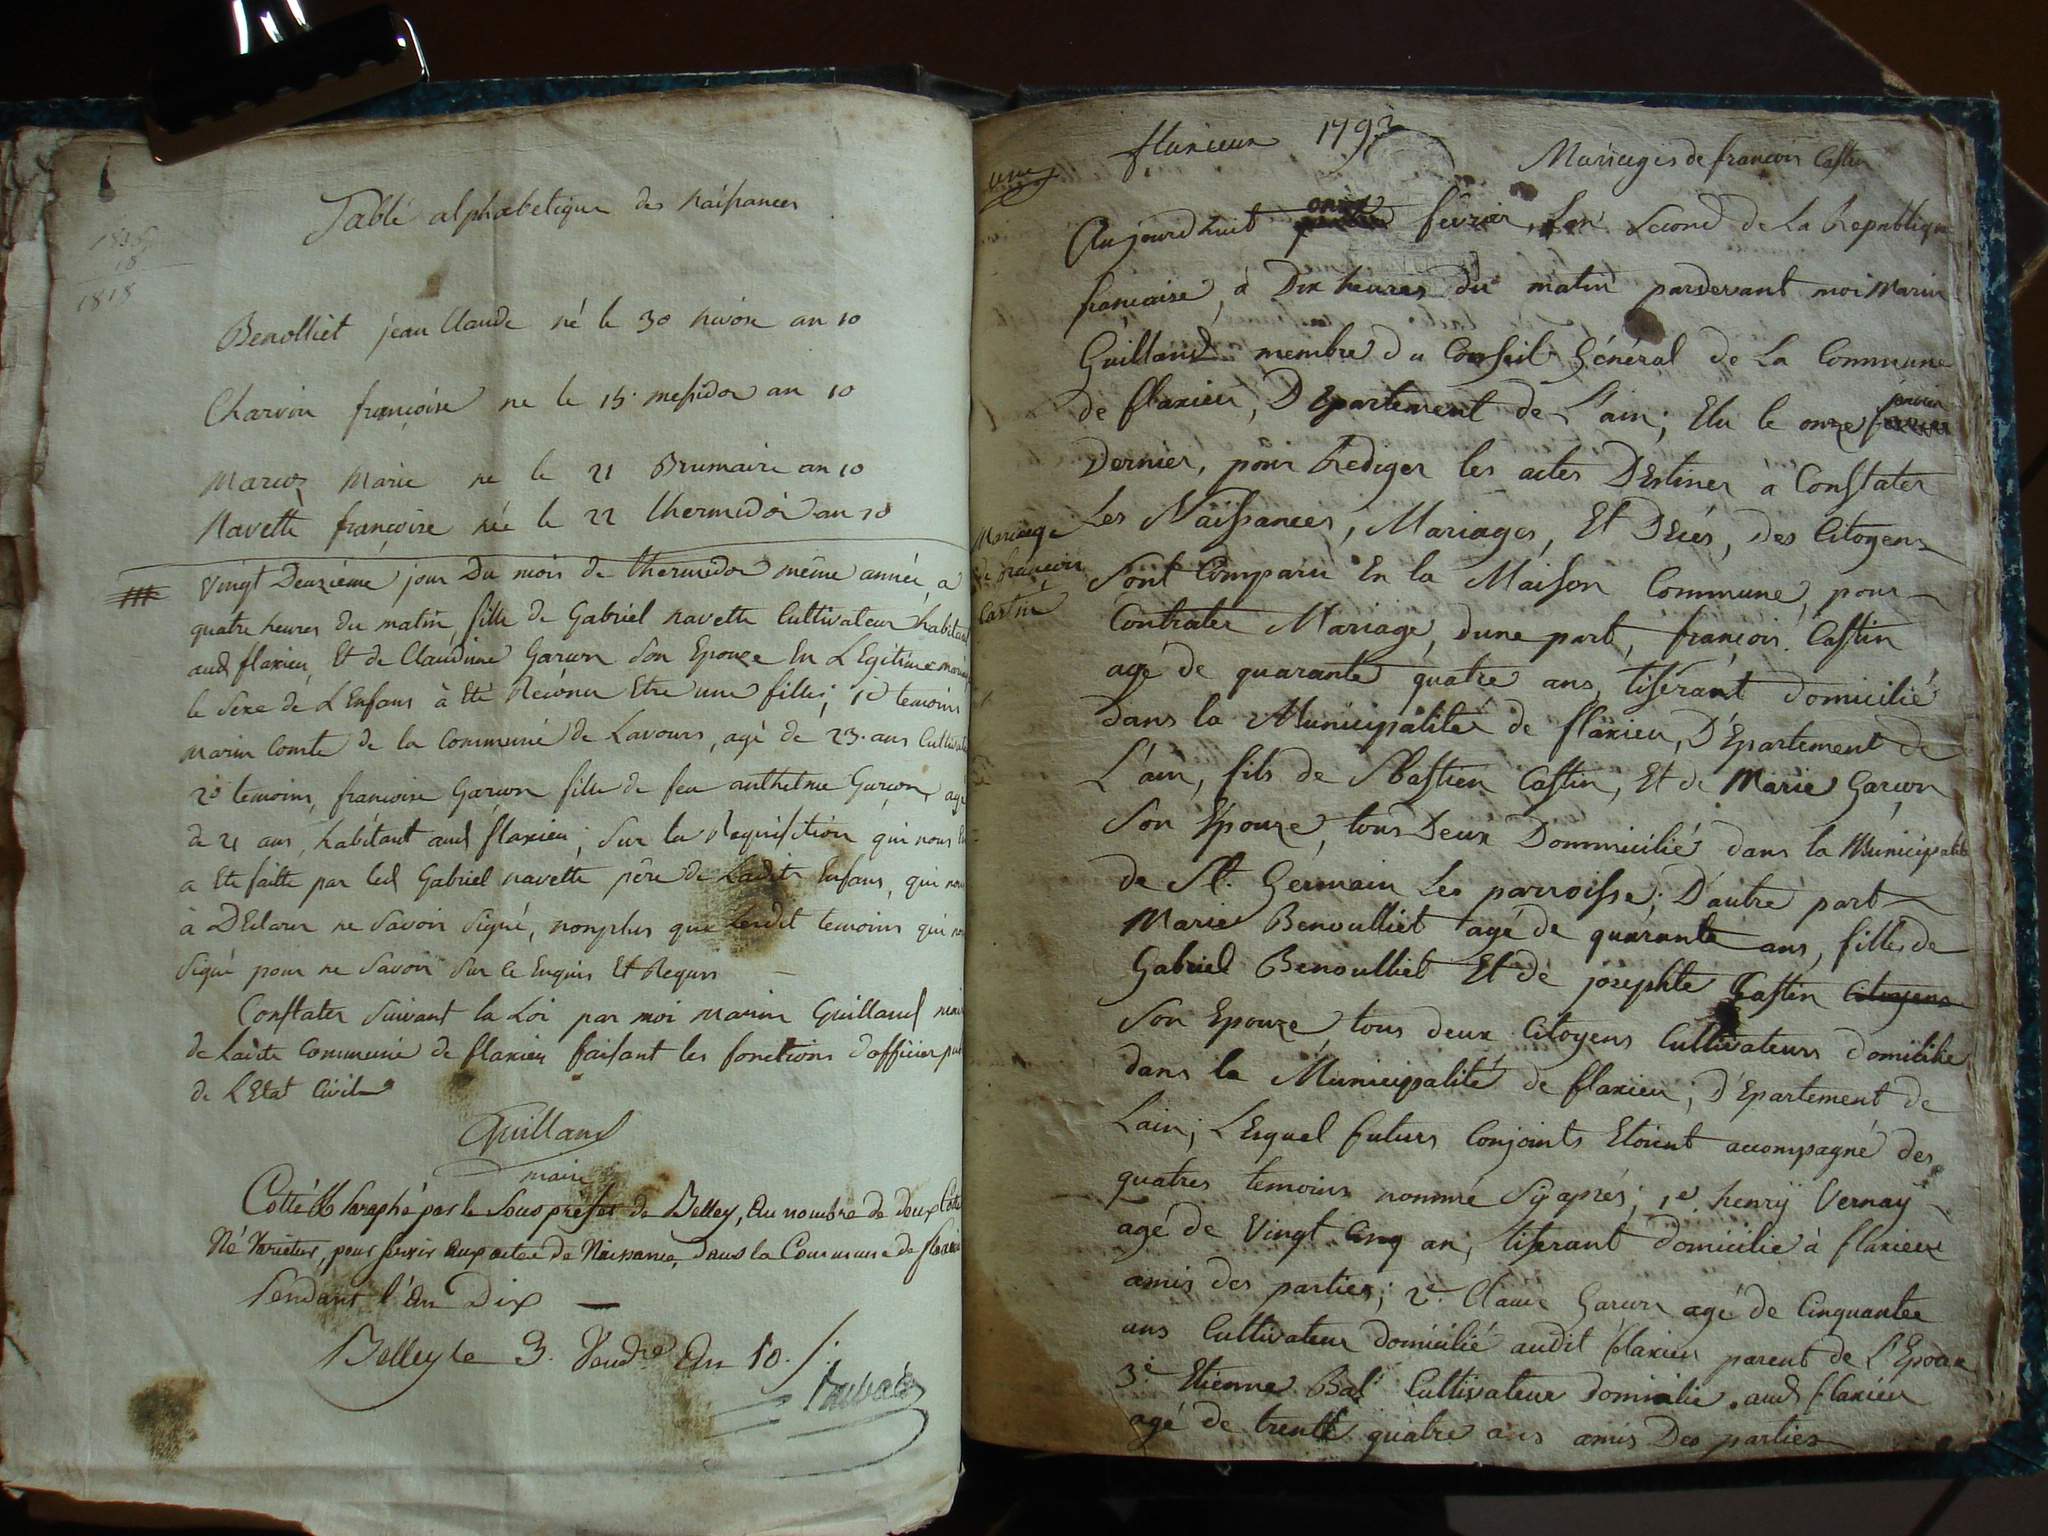 Table alphabetique des Naissances
1818
Benolliet jean Claude né le 30 nivose an 10
Charvin françoise ne le 15. messidor an 10
Marcoz Marie ne le 21 Brumaire an 10
Navette françoise née le 22 thermidor an 10
Vingt Deuzième jour Du mois de thermidor même année a
quatre heures du matin, fille de Gabriel navette Cultivateur habitant
aud flaxieu, Et de Claudine Garçon Son Epouze En LEgitime
le Sexe de LEnfans à Eté Reconu Etre une fille; 1er temoins
marin Comte de la Commune de Lavours, agé de 23. ans
2e temoins, françoise Garçon fille de feu anthelme Garçon,
de 21 ans, habitant aud flaxieu; Sur la Requisition qui nous
a Eté faitte par led Gabriel navette père de Ladite Enfans, qui
à DEclarer ne Savoir Signé, nonplus que Lesdit temoins qui
Signé pour ne Savoir Sur ce Enquis Et Requis
Constater Suivant la Loi par moi marin Guilland
de Ladite Commune de flaxieu faisant les fonctions dofficier
de LEtat Civil
Guilland
maire
Cotté & Paraphé par le Sous prefet de Belley, Au nombre de deux
Né Varietur, pour servir aux actes de Naissance, dans la Commune de
Pendant l'An Dix
Belley le 3. Vendre An 10.
flaxieux 1793
Mariages de francois Castin
Aujourdhuit onze fevrier, Lan Second de La Republique
francaise, à Dix heures du matin pardevant moi Marin
Guilland membre du Conseil Général de La Commune
de flaxieu, DEpartement de L'ain; Elu le onze janvier
Dernier, pour Rediger les actes DEstiner a Constater
Les Naissances, Mariages, Et DEcés, Des Citoyens
Mariage
de françois
Castin
Sont Comparu En la Maison Commune, pour
Contrater Mariage, dune part, françois Castin
agé de quarante quatre ans, tiserant domicilié
dans la Municipalité de flaxieu, DEpartement de
L'ain, fils de Sbastien Castin, Et de Marie Garçon
Son Epouze, tous Deux Dommicilié dans la Municipalité
de St. Germain Les parroisse; D'autre part
Marie Benoulliet agé de quarante ans, fille de
Gabriel Benoulliet Et de josephte Castin Citoyens
Son Epouze, tous deux Citoyens Cultivateurs domicilie
dans la Municipalité de flaxieu; DEpartement de
Lain; LEsquel futurs Conjoints Etoint accompagné des
quatres temoins nommé Syaprés; 1er. henrÿ Vernaÿ
agé de Vingt Cinq an, tiserant domicilie à flaxieu
amis des parties; 2e. Claude Garçon agé de Cinquante
ans Cultivateur domicilié audit flaxieu parent de L'Epouze
3e Etienne Bal Cultivateur domicilie aud flaxieu
agé de trente quatre ans amis Des parties